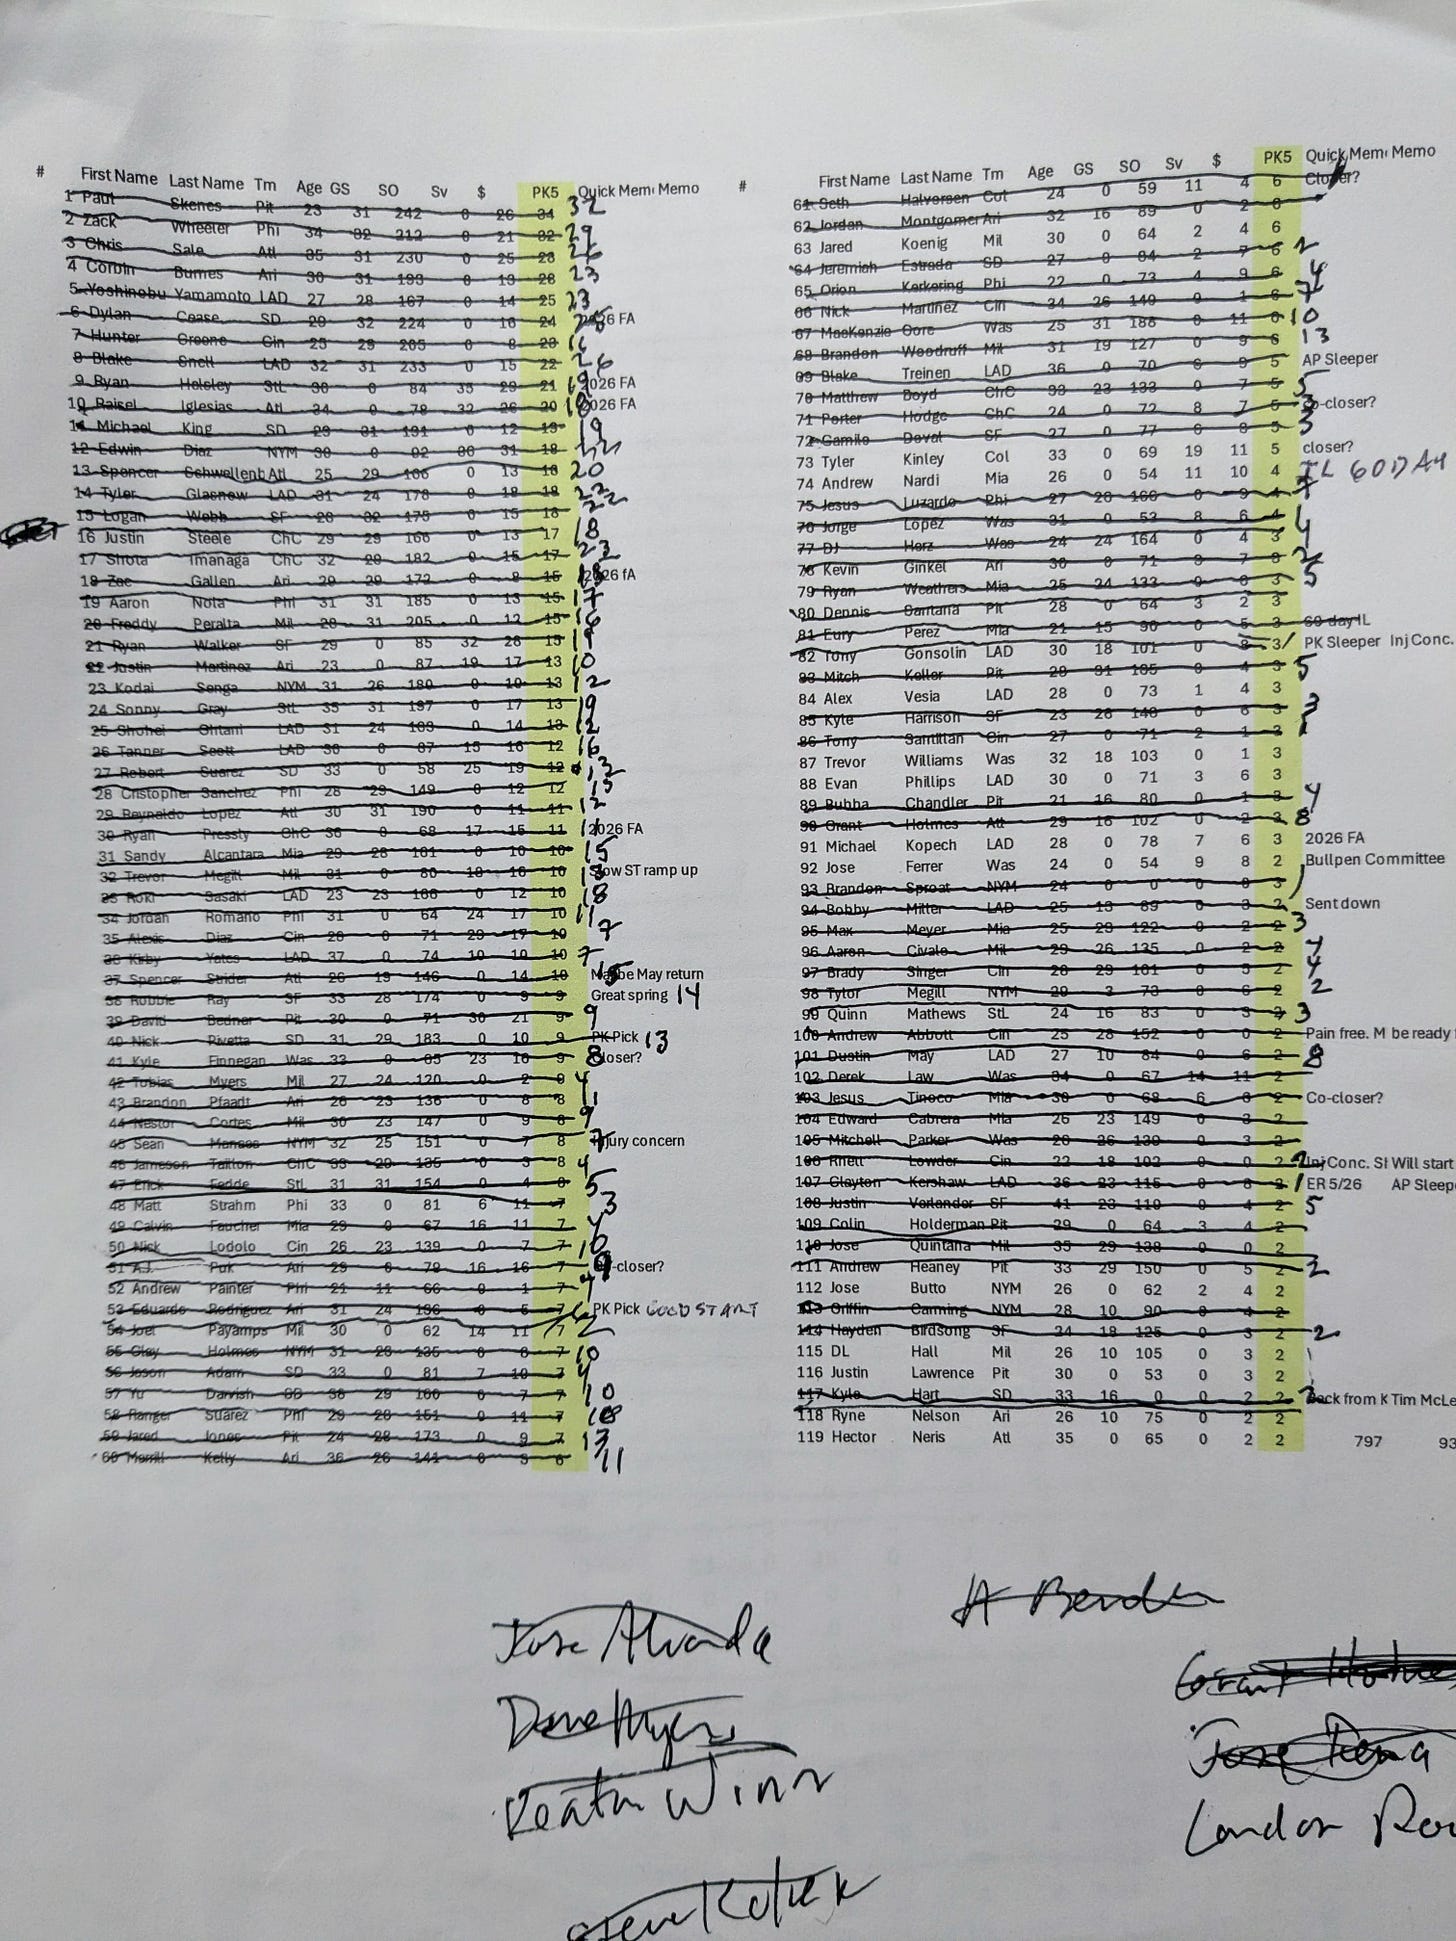 # First Name Last Name Tm Age GS SO Sv $ PK5 Quick Memo Memo
1 Paul Skenes Pit 23 31 242 0 26 34 32
2 Zack Wheeler Phi 34 32 212 0 21 32 29
3 Chris Sale Atl 35 31 230 0 25 28
4 Corbin Burnes Ari 30 31 193 0 19 28 23
5 Yoshinobu Yamamoto LAD 27 28 167 0 14 25 23
6 Dylan Cease SD 29 32 224 0 16 24 2026 FA
7 Hunter Greene Cin 25 29 205 0 8 23
8 Blake Snell LAD 32 31 233 0 15 22 26
9 Ryan Helsley StL 30 0 84 35 29 21 19 2026 FA
10 Raisel Iglesias Atl 34 0 78 32 26 20 18 2026 FA
11 Michael King SD 29 31 191 0 12 19 19
12 Edwin Diaz NYM 30 0 92 36 31 18
13 Spencer Schwellenb Atl 25 29 166 0 13 18 20
14 Tyler Glasnow LAD 31 24 178 0 18 18 22
15 Logan Webb SF 28 32 175 0 15 18 22
16 Justin Steele ChC 29 29 166 0 13 17 18
17 Shota Imanaga ChC 32 29 182 0 15 17 23
18 Zac Gallen Ari 29 29 172 0 8 15 2026 fA
19 Aaron Nola Phi 31 31 185 0 13 15 17
20 Freddy Peralta Mil 28 31 205 0 12 15 16
21 Ryan Walker SF 29 0 85 32 26 15
22 Justin Martinez Ari 23 0 87 19 17 13 10
23 Kodai Senga NYM 31 26 180 0 10 13 12
24 Sonny Gray StL 35 31 197 0 17 13 19
25 Shohei Ohtani LAD 31 24 163 0 14 13 12
26 Tanner Scott LAD 30 0 87 15 16 12 16
27 Robert Suarez SD 33 0 58 25 19 12 13
28 Cristopher Sanchez Phi 28 29 149 0 12 12 15
29 Reynaldo Lopez Atl 30 31 190 0 11 11 12
30 Ryan Pressly ChC 36 0 68 17 15 11 2026 FA
31 Sandy Alcantara Mia 29 28 161 0 10 10 15
32 Trevor Megill Mil 31 0 80 18 16 10 Slow ST ramp up
33 Roki Sasaki LAD 23 23 166 0 12 10 18
34 Jordan Romano Phi 31 0 64 24 17 10 11
35 Alexis Diaz Cin 28 0 71 29 17 10 7
36 Kirby Yates LAD 37 0 74 10 10 10 7
37 Spencer Strider Atl 26 19 146 0 14 10 15 Maybe May return
38 Robbie Ray SF 33 28 174 0 9 9 Great spring 14
39 David Bednar Pit 30 0 71 30 21 9 9
40 Nick Pivetta SD 31 29 183 0 10 9 PK Pick 13
41 Kyle Finnegan Was 33 0 65 23 16 9 8 Closer?
42 Tobias Myers Mil 27 24 120 0 2 8 4
43 Brandon Pfaadt Ari 26 23 136 0 8 8
44 Nestor Cortes Mil 30 23 147 0 9 8 9
45 Sean Manaea NYM 32 25 151 0 7 8 7 Injury concern
46 Jameson Taillon ChC 33 29 135 0 3 8 4
47 Erick Fedde StL 31 31 154 0 4 8 5
48 Matt Strahm Phi 33 0 81 6 11 7 3
49 Calvin Faucher Mia 29 0 67 16 11 7
50 Nick Lodolo Cin 26 23 139 0 7 7 10
51 A.J. Puk Ari 29 0 79 16 16 7 9 Co-closer?
52 Andrew Painter Phi 21 11 66 0 1 7
53 Eduardo Rodriguez Ari 31 24 136 0 5 7 PK Pick GOOD START
54 Joel Payamps Mil 30 0 62 14 11 7 2
55 Clay Holmes NYM 31 26 135 0 6 7 10
56 Jason Adam SD 33 0 81 7 10 7 4
57 Yu Darvish SD 38 29 160 0 7 7 10
58 Ranger Suarez Phi 29 28 151 0 11 7
59 Jared Jones Pit 24 28 173 0 9 7 13
60 Merrill Kelly Ari 36 26 141 0 5 6 11
# First Name Last Name Tm Age GS SO Sv $ PK5 Quick Memo Memo
61 Seth Halvorsen Col 24 0 59 11 4 6 Closer?
62 Jordan Montgomer Ari 32 16 89 0 2 6
63 Jared Koenig Mil 30 0 64 2 4 6
64 Jeremiah Estrada SD 27 0 84 2 7 6 2
65 Orion Kerkering Phi 22 0 73 4 9 6 4
66 Nick Martinez Cin 34 26 149 0 1 6 7
67 MacKenzie Gore Was 25 31 186 0 11 6 10
68 Brandon Woodruff Mil 31 19 127 0 9 6 13
69 Blake Treinen LAD 36 0 70 6 9 5 AP Sleeper
70 Matthew Boyd ChC 33 23 133 0 7 5 5
71 Porter Hodge ChC 24 0 72 8 7 5 3 Co-closer?
72 Camilo Doval SF 27 0 77 8 8 5 3
73 Tyler Kinley Col 33 0 69 19 11 5 closer?
74 Andrew Nardi Mia 26 0 54 11 10 4 IL 60 DAY
75 Jesus Luzardo Phi 27 28 166 0 9 4 7
76 Jorge Lopez Was 31 0 53 8 6 4
77 DJ Herz Was 24 24 164 0 4 3 4
78 Kevin Ginkel Ari 30 0 71 3 7 3 2
79 Ryan Weathers Mia 25 24 133 0 6 3 5
80 Dennis Santana Pit 28 0 64 3 2 3
81 Eury Perez Mia 21 15 90 0 5 3 60 day IL
82 Tony Gonsolin LAD 30 18 101 0 8 3 PK Sleeper Inj Conc.
83 Mitch Keller Pit 28 31 165 0 4 3 5
84 Alex Vesia LAD 28 0 73 1 4 3
85 Kyle Harrison SF 23 26 140 0 6 3 3
86 Tony Santillan Cin 27 0 71 2 1 3 1
87 Trevor Williams Was 32 18 103 0 1 3
88 Evan Phillips LAD 30 0 71 3 6 3
89 Bubba Chandler Pit 21 16 80 0 1 3 4
90 Grant Holmes Atl 29 16 102 0 2 3 8
91 Michael Kopech LAD 28 0 78 7 6 3 2026 FA
92 Jose Ferrer Was 24 0 54 9 8 2 Bullpen Committee
93 Brandon Sproat NYM 24 0 0 0 0 3
94 Bobby Miller LAD 25 13 89 0 3 2 Sent down
95 Max Meyer Mia 25 23 122 0 2 2 3
96 Aaron Civale Mil 29 26 135 0 2 2 4
97 Brady Singer Cin 28 29 161 0 5 2 4
98 Tylor Megill NYM 29 3 73 0 6 2 2
99 Quinn Mathews StL 24 16 83 0 3 2 3
100 Andrew Abbott Cin 25 28 152 0 0 2 Pain free. M be ready
101 Dustin May LAD 27 10 84 0 6 2 8
102 Derek Law Was 34 0 67 14 11 2
103 Jesus Tinoco Mia 30 0 68 6 8 2 Co-closer?
104 Edward Cabrera Mia 26 23 149 0 3 2
105 Mitchell Parker Was 26 26 139 0 3 2
106 Rhett Lowder Cin 22 18 102 0 0 2 Inj Conc. SI Will start
107 Clayton Kershaw LAD 36 23 115 0 8 2 1 ER 5/26 AP Sleep
108 Justin Verlander SF 41 23 110 0 4 2 5
109 Colin Holderman Pit 29 0 64 3 4 2
110 Jose Quintana Mil 35 29 138 0 0 2
111 Andrew Heaney Pit 33 29 150 0 5 2 2
112 Jose Butto NYM 26 0 62 2 4 2
113 Griffin Canning NYM 28 10 90 0 4 2
114 Hayden Birdsong SF 24 18 125 0 3 2 2
115 DL Hall Mil 26 10 105 0 3 2
116 Justin Lawrence Pit 30 0 53 0 3 2
117 Kyle Hart SD 33 16 0 0 2 2 Back from K Tim McLe
118 Ryne Nelson Ari 26 10 75 0 2 2
119 Hector Neris Atl 35 0 65 0 2 2 797 93
Jose Alvarada
Keaton Winn
Steve Kolek
Grant Holmes
Landon Rou